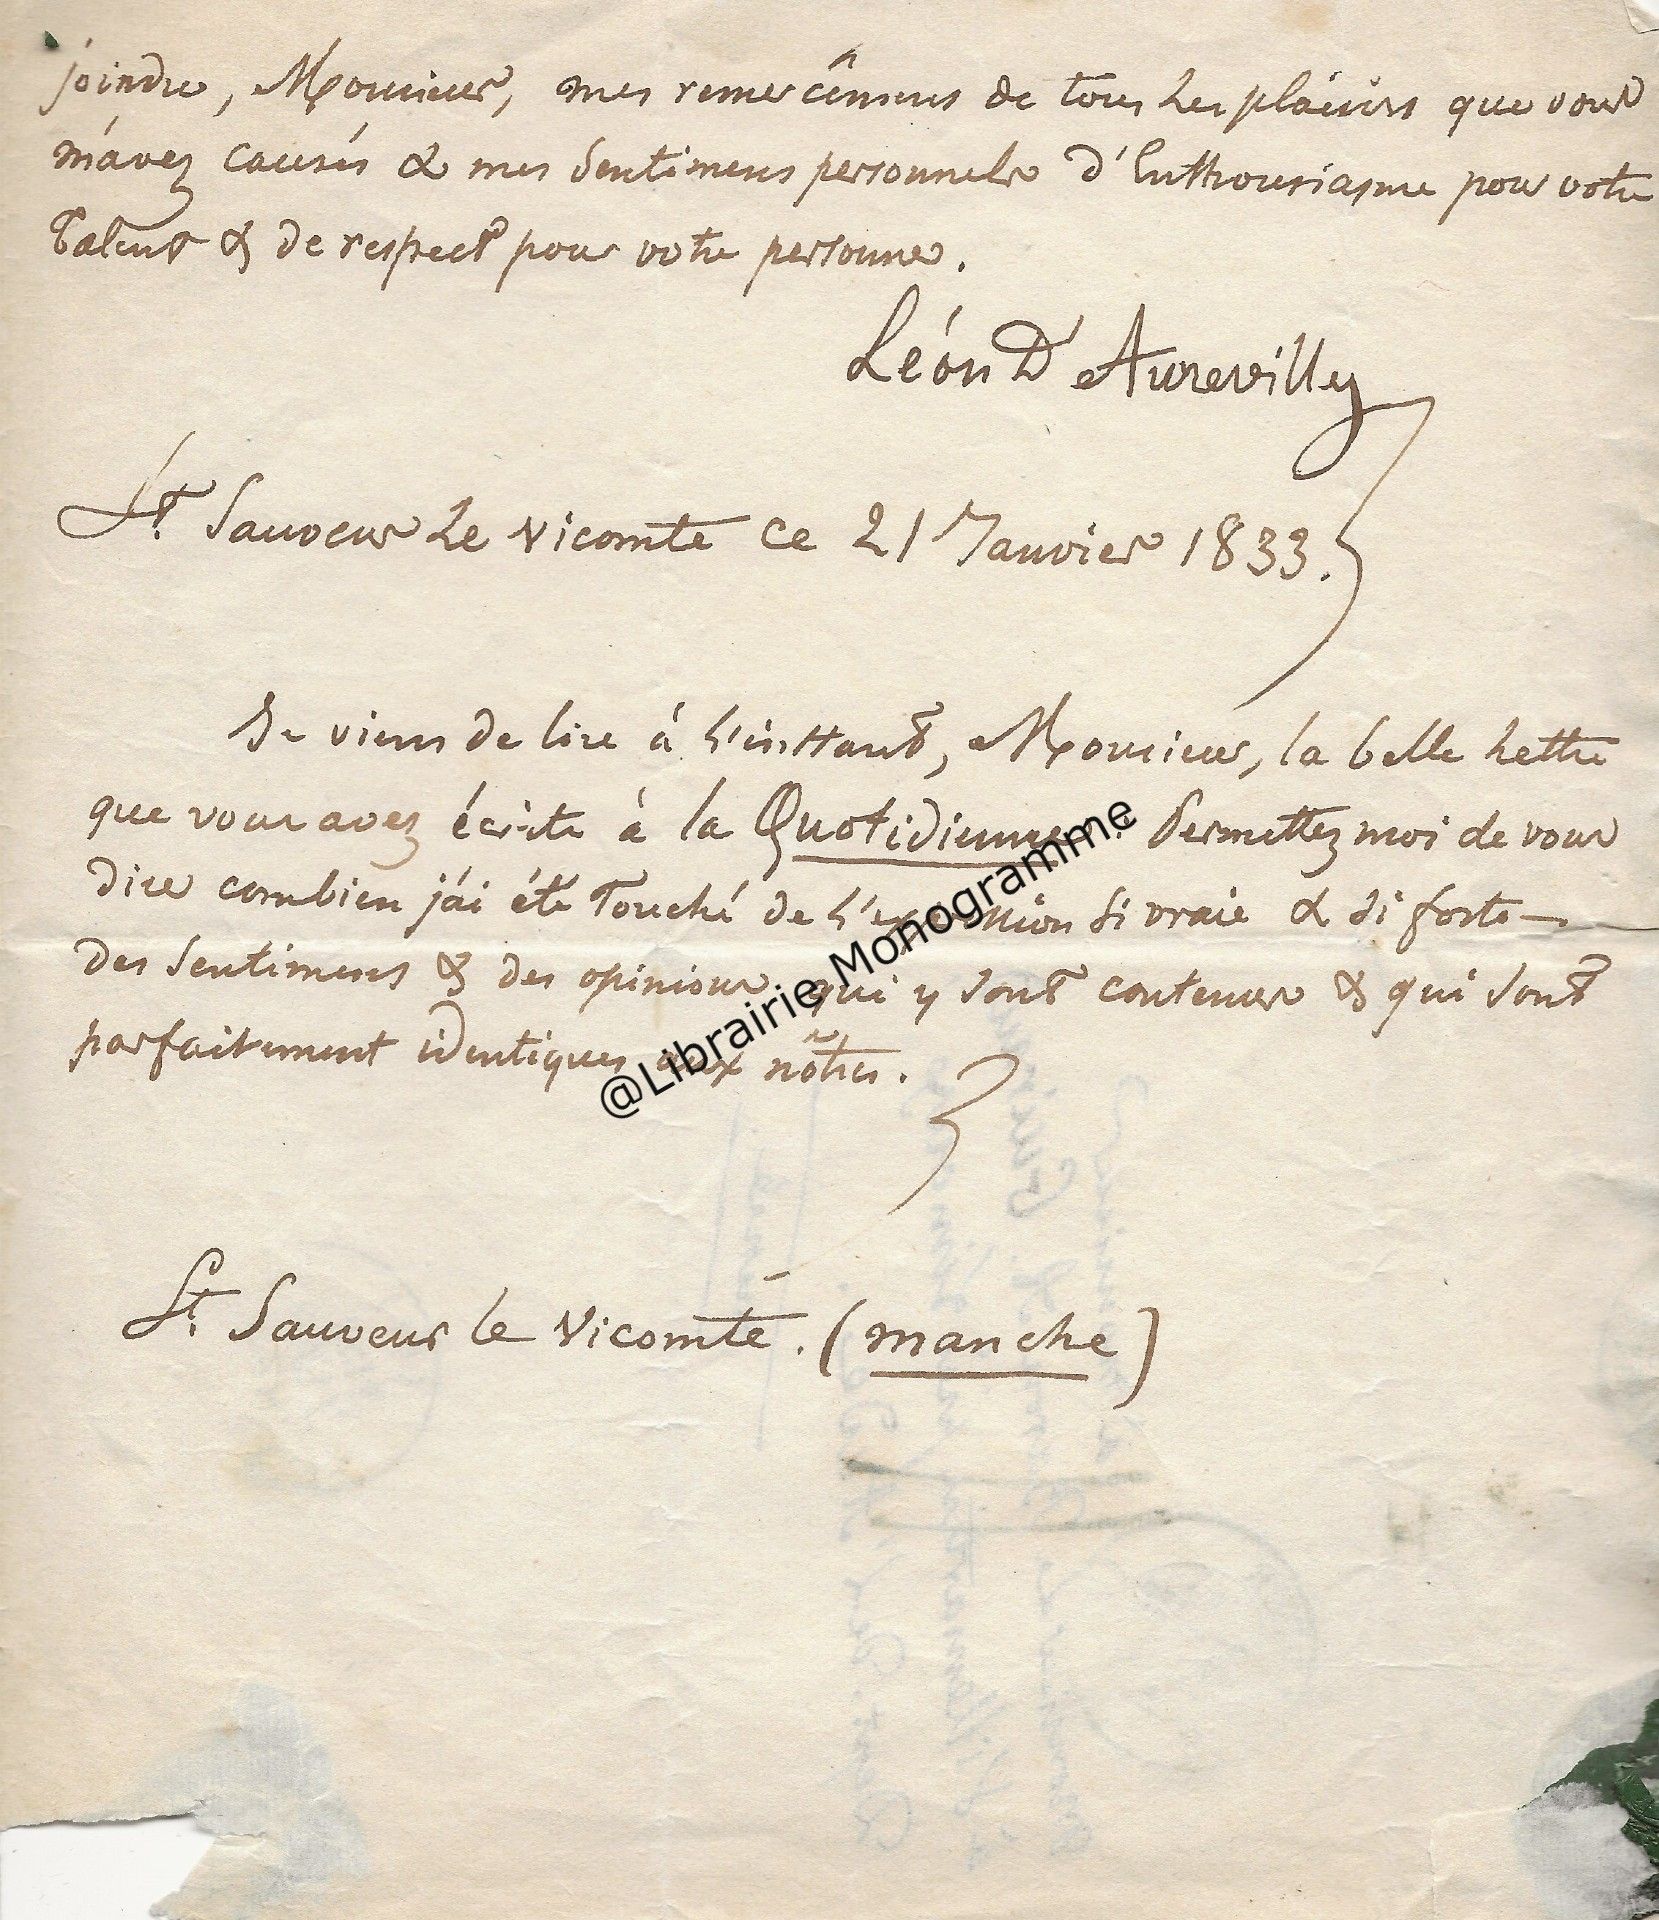 joindre, Monsieur, mes remercîmens de tous les plaisirs que vous
m'avez causés & mes sentimens personnels d'Enthousiasme pour votre
Talent & de respect pour votre personne.
Léon D'Aurevilly
St. Sauveur Le Vicomte ce 21 Janvier 1833.
Je viens de lire à l'instant, Monsieur, la belle Lettre
que vous avez écrite à la Quotidienne. Permettez moi de vous
dire combien j'ai été Touché de l'expression si vraie & si forte
des sentimens & des opinions qui y sont contenus & qui sont
parfaitement identiques aux nôtres.
@Librairie Monogramme
St. Sauveur le Vicomte. (manche)